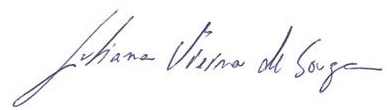 Juliana Vieira de Souza